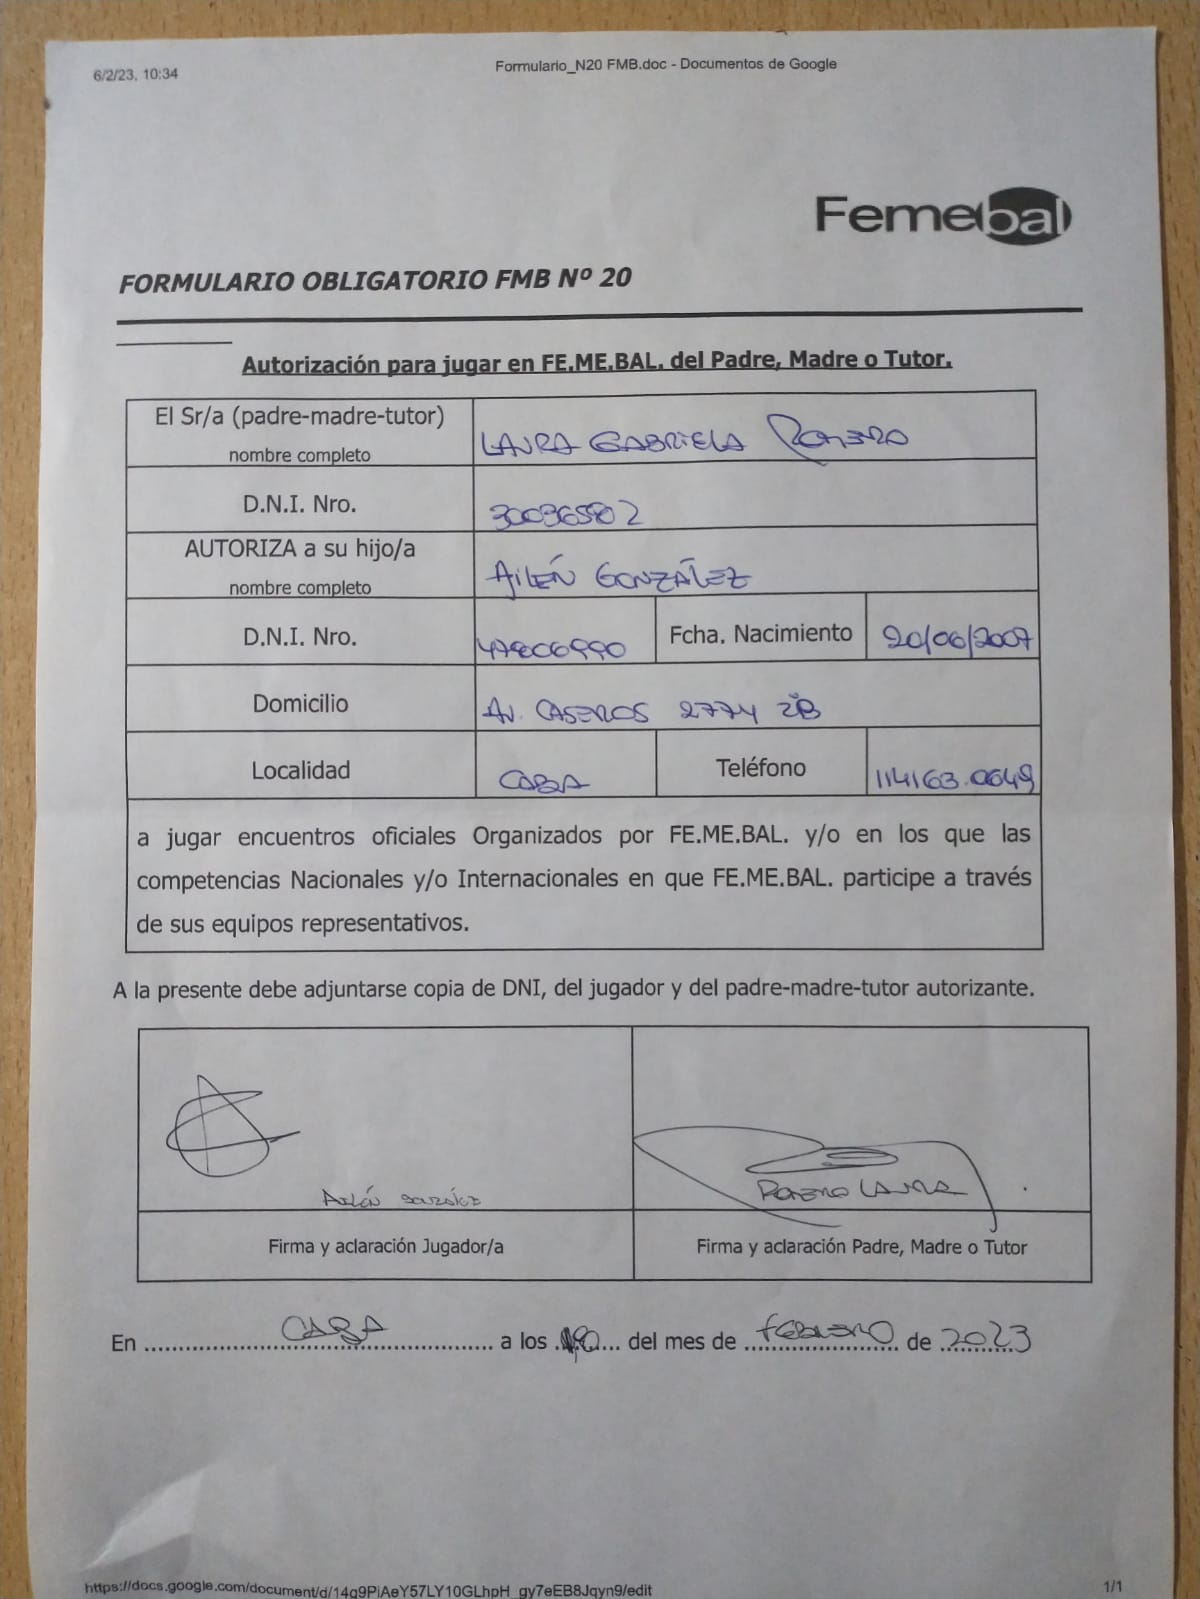 6/2/23, 10:34
Formulario_N20 FMB.doc - Documentos de Google
Femebal
FORMULARIO OBLIGATORIO FMB Nº 20
Autorización para jugar en FE.ME.BAL. del Padre, Madre o Tutor.
El Sr/a (padre-madre-tutor)
nombre completo
LAURA GABRIELA ROMERO
D.N.I. Nro.
AUTORIZA a su hijo/a
nombre completo
AILÉN GONZÁLEZ
D.N.I. Nro.
Fcha. Nacimiento
20/06/2007
Domicilio
AV. CASEROS 2774 2ºB
Localidad
CABA
Teléfono
114163.0649
a jugar encuentros oficiales Organizados por FE.ME.BAL. y/o en los que las
competencias Nacionales y/o Internacionales en que FE.ME.BAL. participe a través
de sus equipos representativos.
A la presente debe adjuntarse copia de DNI, del jugador y del padre-madre-tutor autorizante.
Ailén González
ROMERO LAURA
Firma y aclaración Jugador/a
Firma y aclaración Padre, Madre o Tutor
En CABA a los del mes de FEBRERO de 2023
https://docs.google.com/document/d/14q9PiAeY57LY10GLhpH_gy7eEB8Jqyn9/edit
1/1